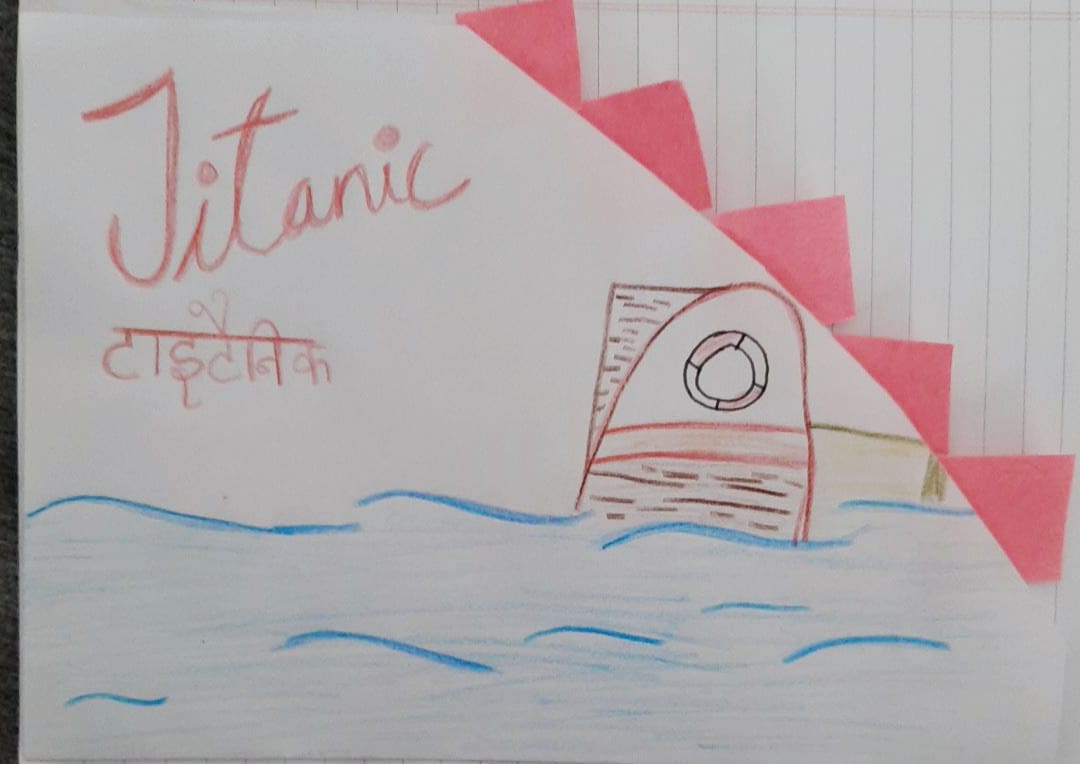 Titanic
टाइटैनिक